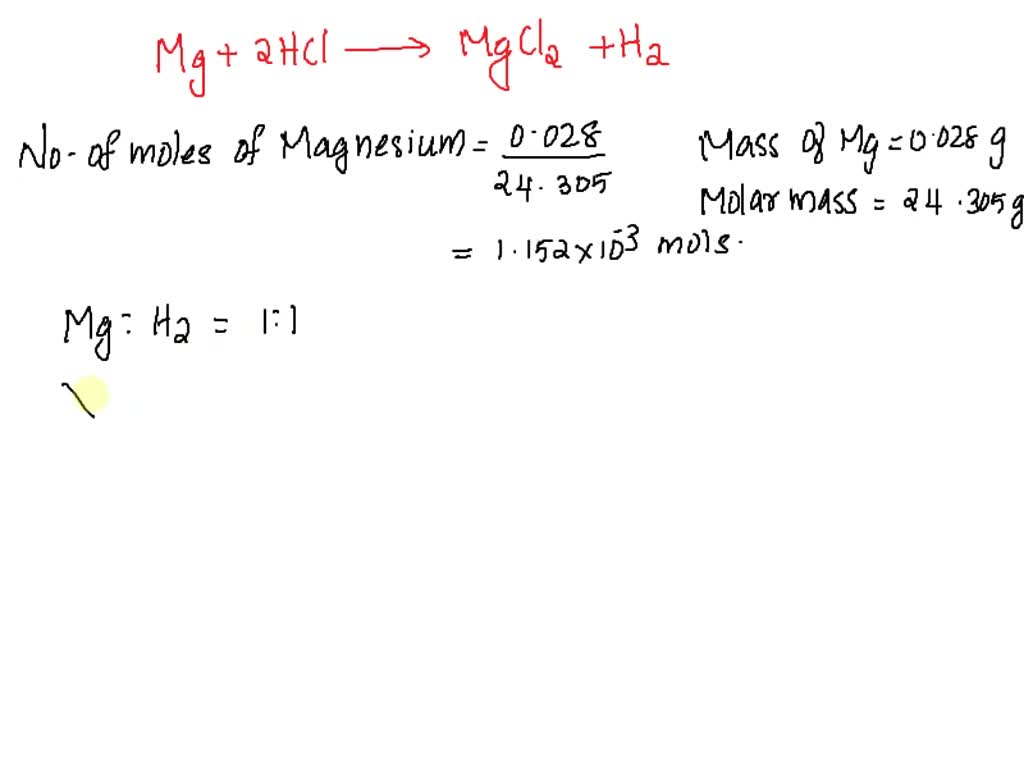 Mg + 2HCl ⟶ MgCl₂ + H₂
No. of moles of Magnesium = 0.028 / 24.305
Mass of Mg = 0.028 g
Molar mass = 24.305 g
= 1.152 × 10⁻³ mols.
Mg : H₂ = 1:1